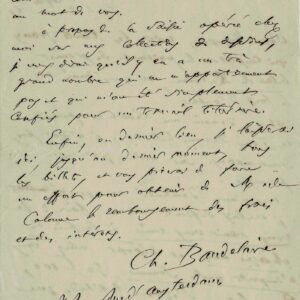 un mot de vous.
à propos de la saisie opérée chez
moi sur mes collections de dessins,
je vous dirai qu'il y en a un très
grand nombre qui ne m'appartiennent
pas et qui m'ont été simplement
confiés pour un travail littéraire.
Enfin, en dernier lieu, je
ici jusqu'au dernier moment, tous
les billets, et vous prierai de faire
un effort pour obtenir de M de
Calonne le remboursement des frais
et des intérêts.
Ch. Baudelaire
22, rue d'amsterdam